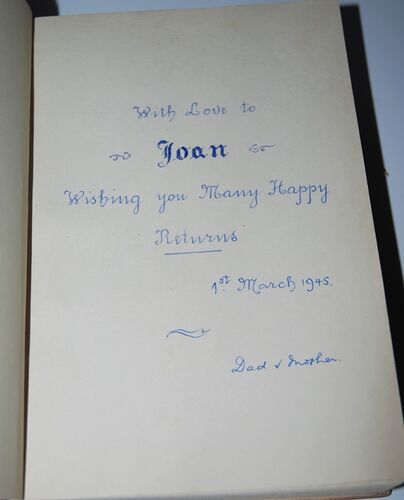 With Love to
Joan
Wishing you Many Happy
Returns
1st March 1945.
Dad & Mother.